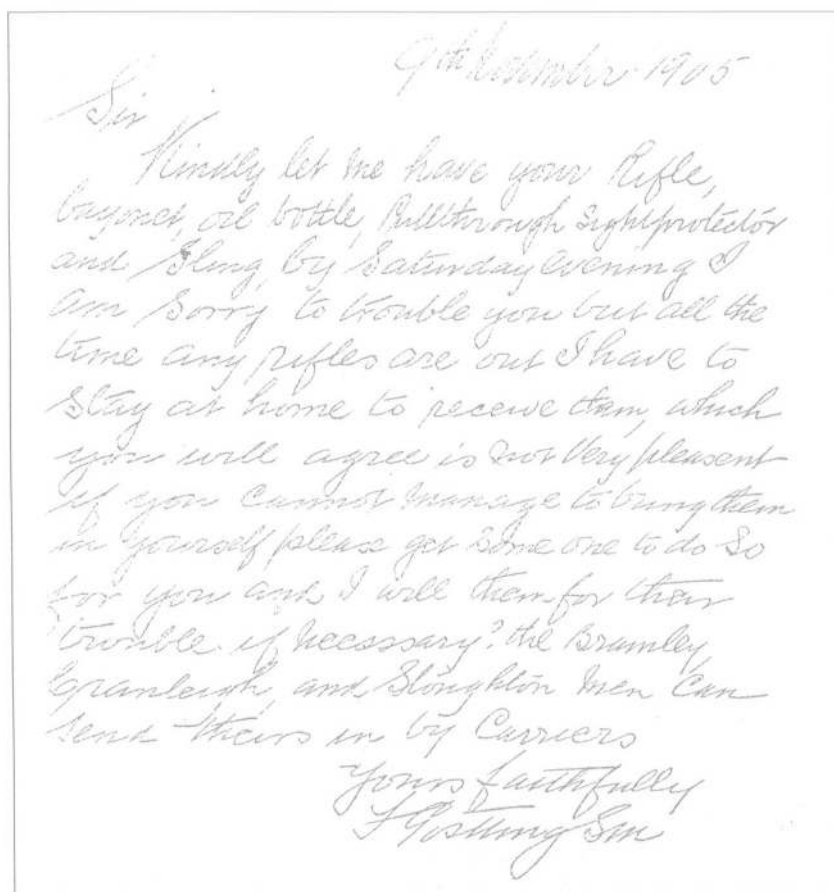 9th November 1905
Sir
Kindly let me have your Rifle,
bayonet, oil bottle, Pullthrough Sightprotector
and Sling, by Saturday evening I
am Sorry to trouble you but all the
time any rifles are out I have to
Stay at home to receive them, which
you will agree is not Very pleasent
if you cannot manage to bring them
in yourself please get some one to do So
for you and I will them for their
trouble. if necessary? the Bramley,
Cranleigh, and Stoughton Men Can
Send theirs in by Carriers
Yours faithfully
F Gostling